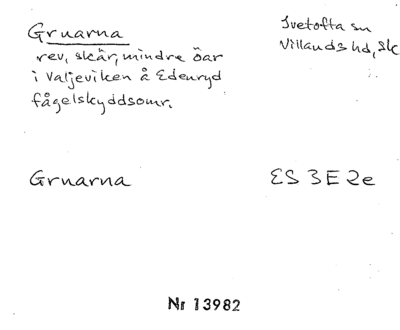 Gruarna
rev, skär, mindre öar
i Valjeviken å Edenryd
fågelskyddsomr.
Ivetofta sn
Villands hd, Sk
Gruarna
ES 3E 2e
Nr 13982